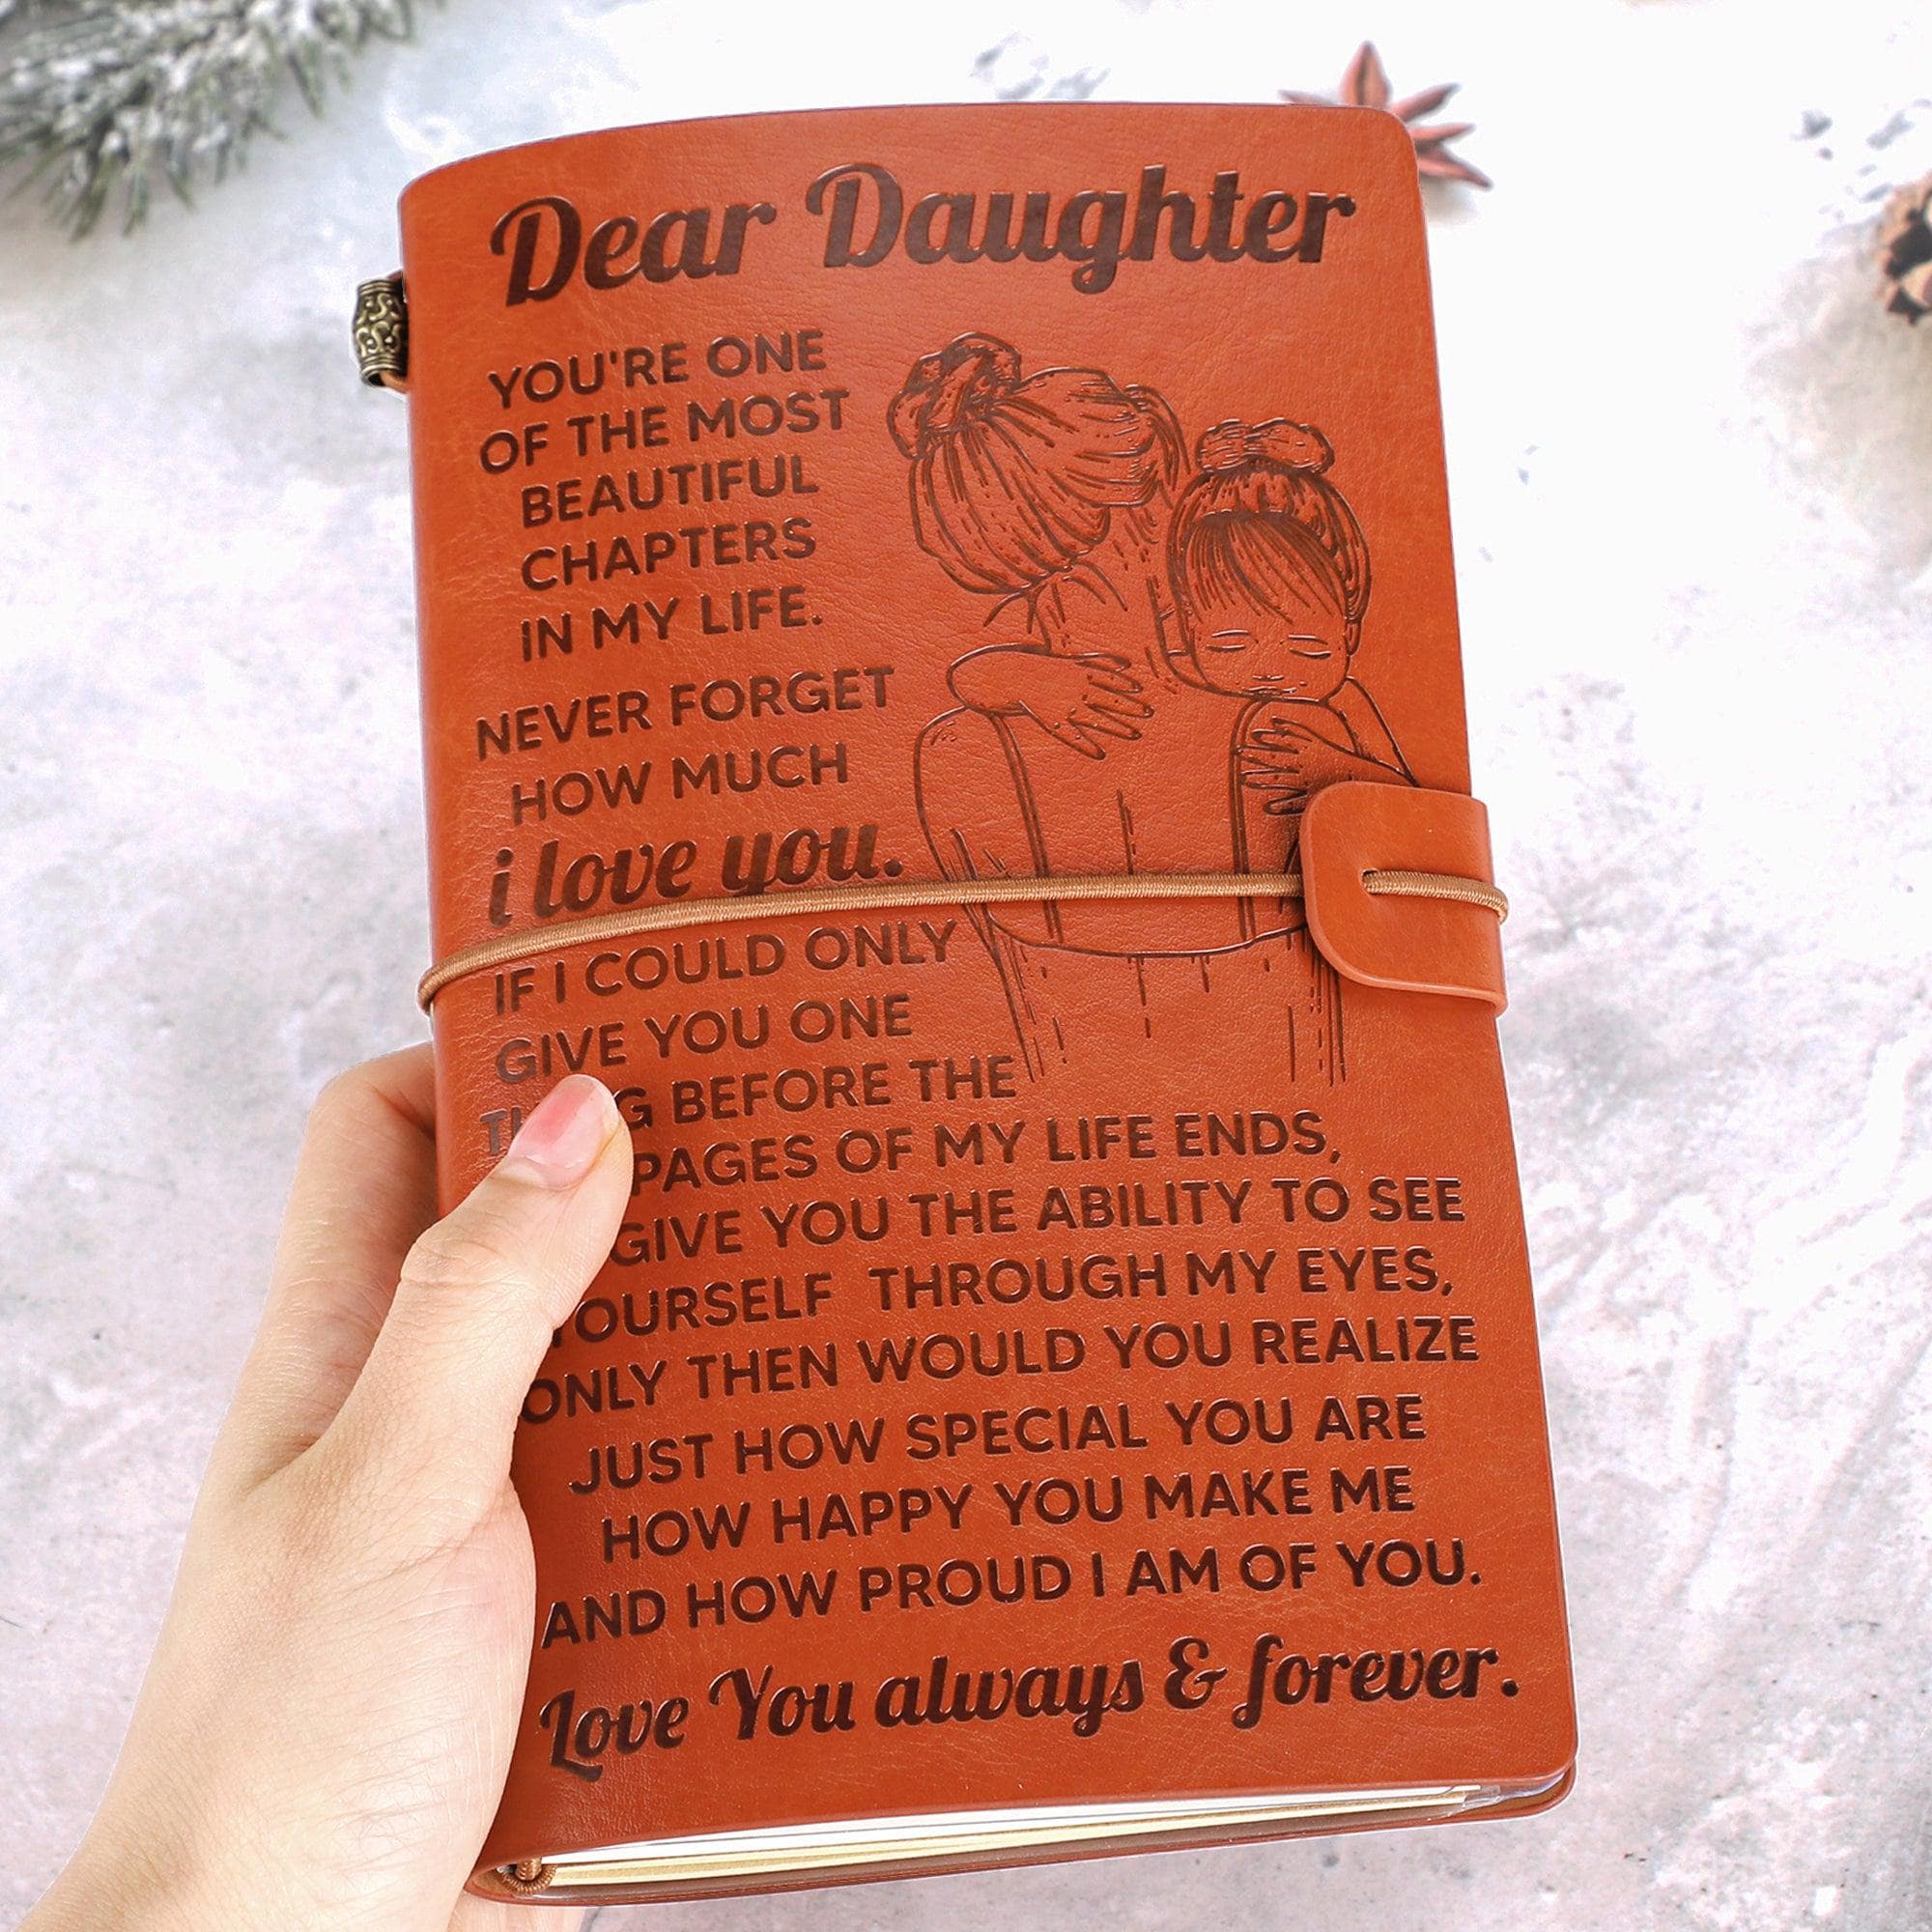 Dear Daughter
YOU'RE ONE
OF THE MOST
BEAUTIFUL
CHAPTERS
IN MY LIFE.
NEVER FORGET
HOW MUCH
i love you.
IF I COULD ONLY
GIVE YOU ONE
BEFORE THE
PAGES OF MY LIFE ENDS,
GIVE YOU THE ABILITY TO SEE
YOURSELF THROUGH MY EYES,
ONLY THEN WOULD YOU REALIZE
JUST HOW SPECIAL YOU ARE
HOW HAPPY YOU MAKE ME
AND HOW PROUD I AM OF YOU.
Love You always & forever.